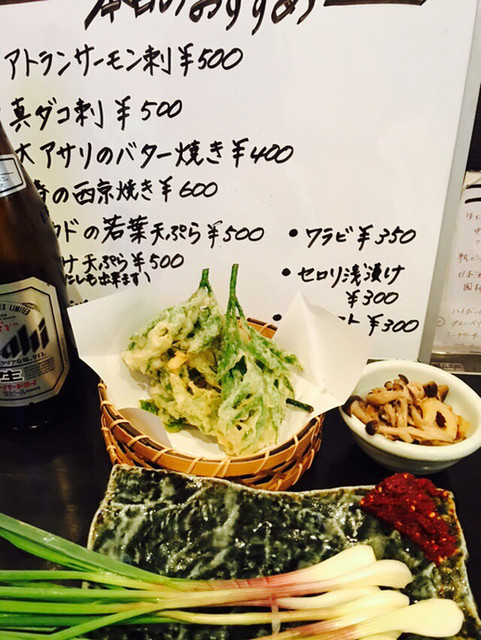 本日のおすすめ
アトランサーモン刺 ¥500
真ダコ刺 ¥500
大アサリのバター焼き ¥400
の西京焼き ¥600
ウドの若葉天ぷら ¥500
け天ぷら ¥500
だしも出来ます)
・ワラビ ¥350
・セロリ浅漬け
¥300
ト ¥300
Asahi
生